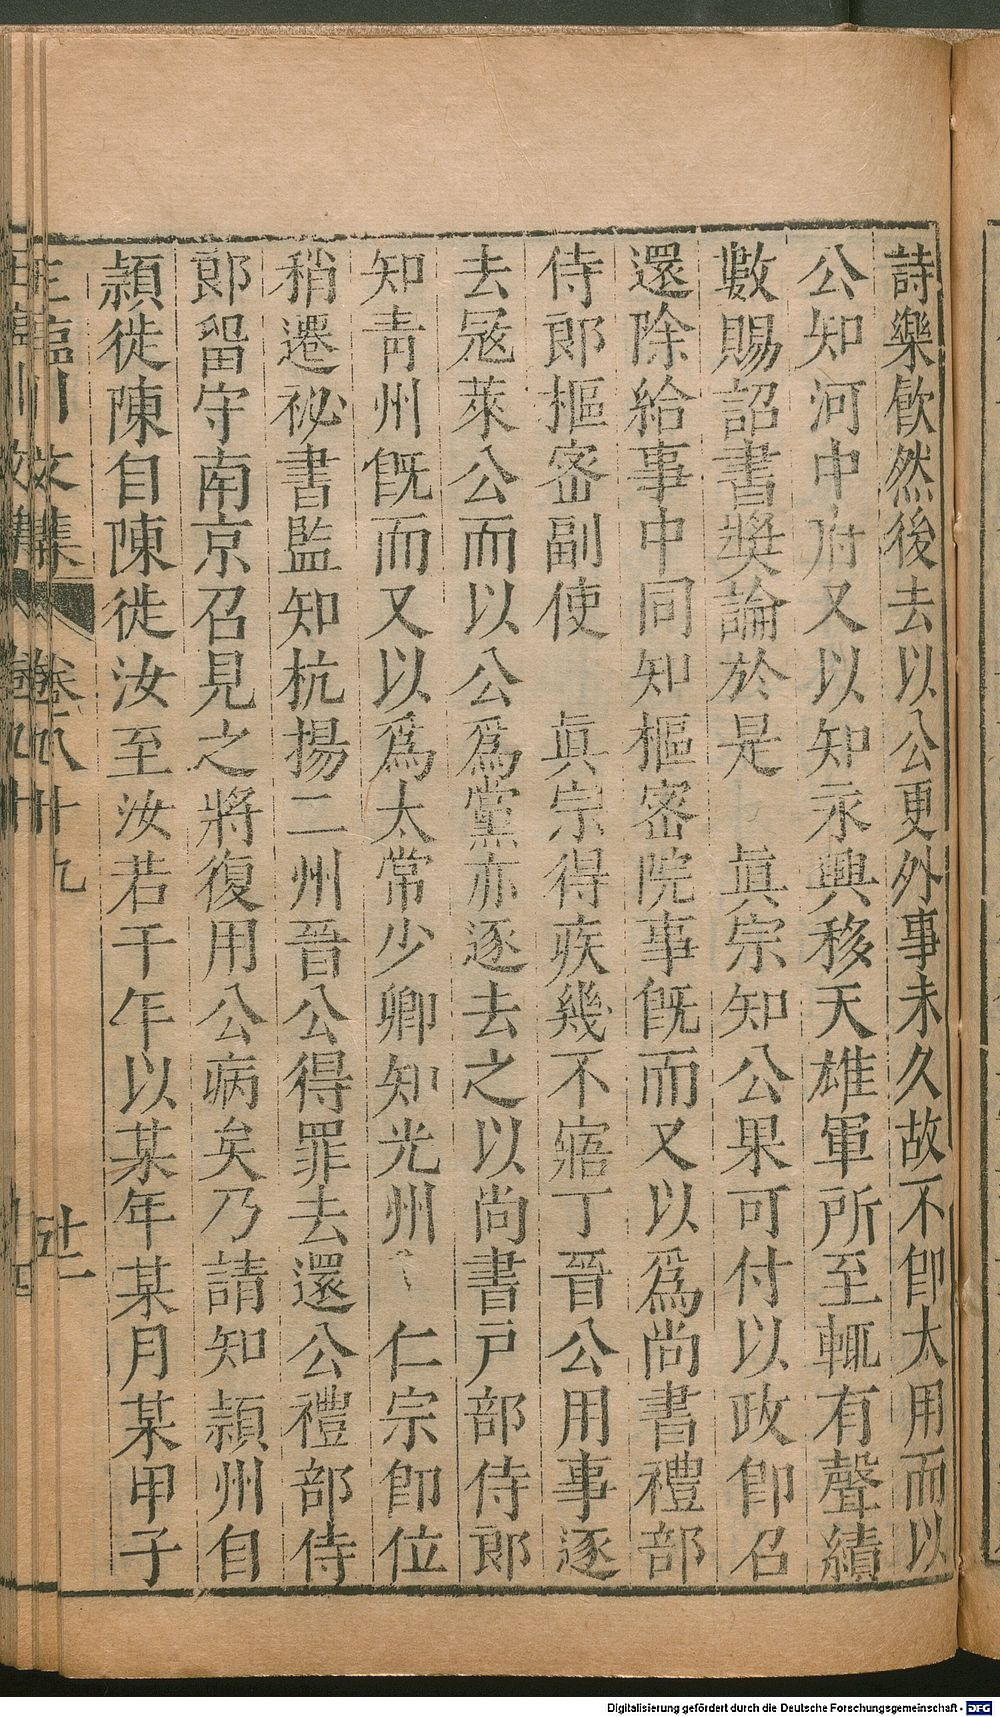 詩樂飲然後去以公更外事未久故不卽大用而以
公知河中府又以知永興移天雄軍所至輒有聲績
數賜詔書奬諭於是　眞宗知公果可付以政卽召
還除給事中同知樞密院事旣而又以爲尚書禮部
侍郎樞密副使　眞宗得疾幾不寤丁晉公用事逐
去冦萊公而以公爲黨亦逐去之以尚書戸部侍郎
知青州旣而又以爲太常少卿知光州　仁宗卽位
稍遷祕書監知杭揚二州晉公得罪去還公禮部侍
郎留守南京召見之將復用公病矣乃請知頴州自
頴徙陳自陳徙汝至汝若干年以某年某月某甲子
王臨川文集　卷八十九　廿一
Digitalisierung gefördert durch die Deutsche Forschungsgemeinschaft - DFG